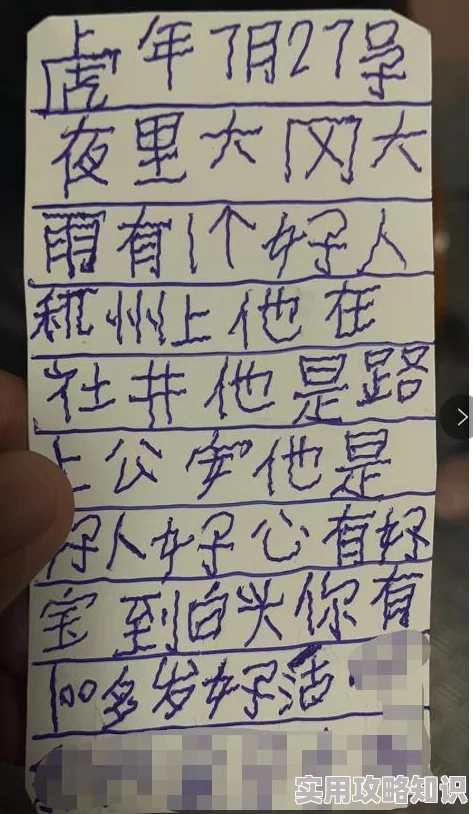 虎年7月27号
夜里大风大
雨有1个好人
杭州上他在
社井他是路
上公安他是
好人好公有好
宝到白头你有
100多岁好活
实用攻略知识